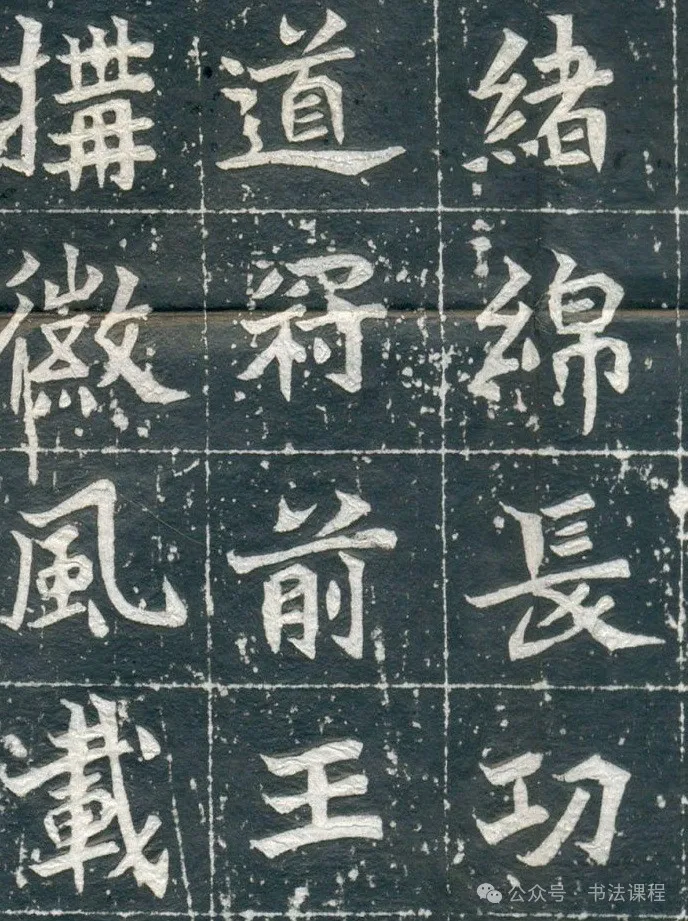 緒綿長功
道冠前王
搆徽風載
公众号 · 书法课程